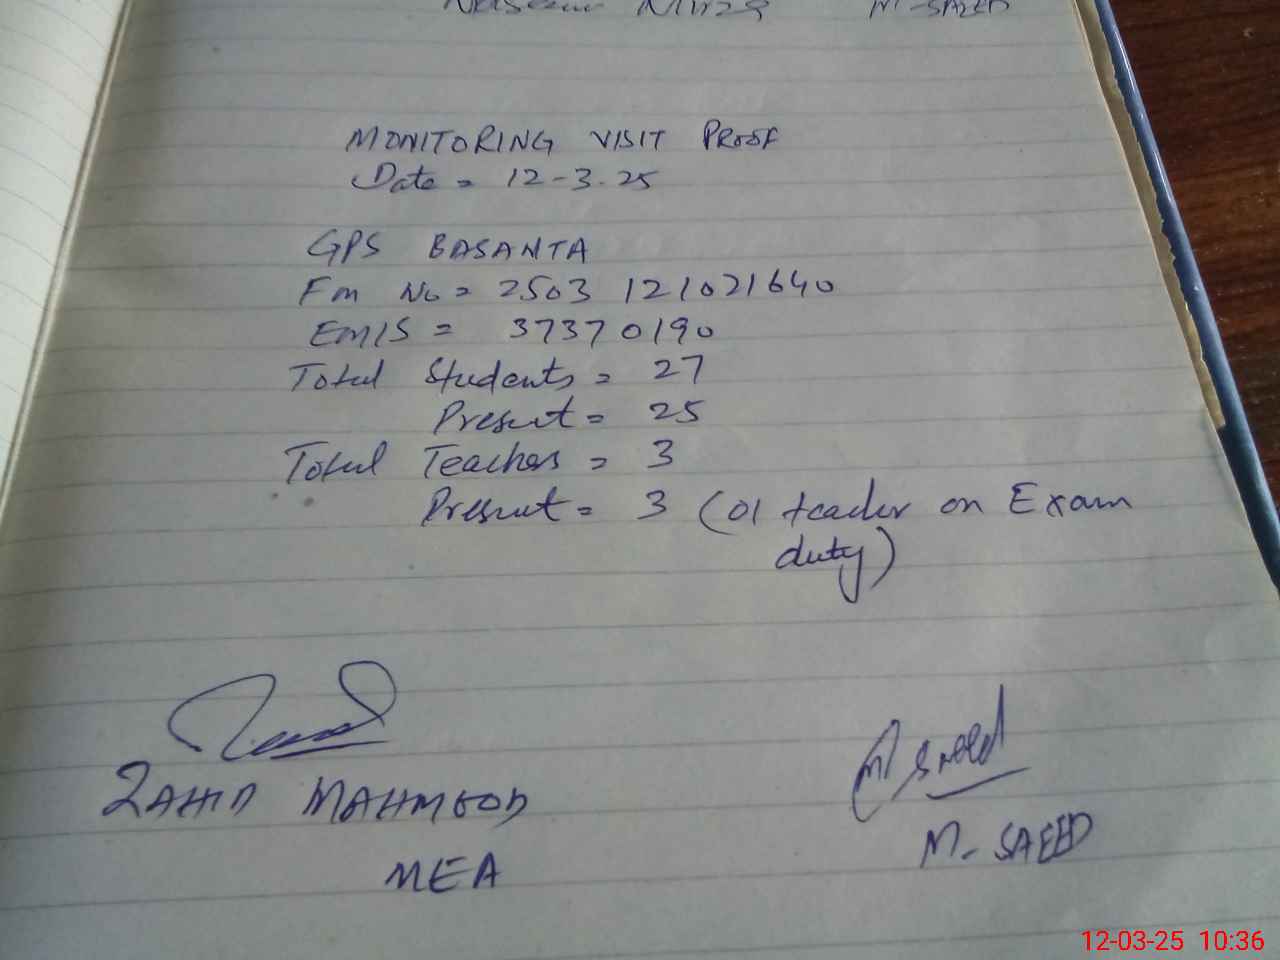 M-SAEED
MONITORING VISIT PROOF
Date = 12-3-25
GPS BASANTA
Fm No = 2503 121021640
EMIS = 37370190
Total Students = 27
Present = 25
Total Teachers = 3
Present = 3 (01 teacher on Exam
duty)
M Saeed
ZAHID MAHMOOD
M-SAEED
MEA
12-03-25 10:36